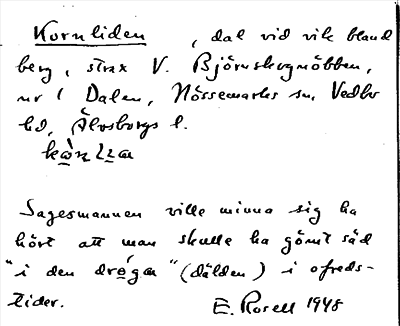 Kornliden, dal vid vik bland
berg, strax V. Björnskognöbben,
nr 1 Dalen, Nössemarks sn, Vedbo
hd, Älvsborgs l.
Sagesmannen ville minna sig ha
hört att man skulle ha gömt säd
"i den drøga" (dälden) i ofreds-
tider. E. Rosell 1948